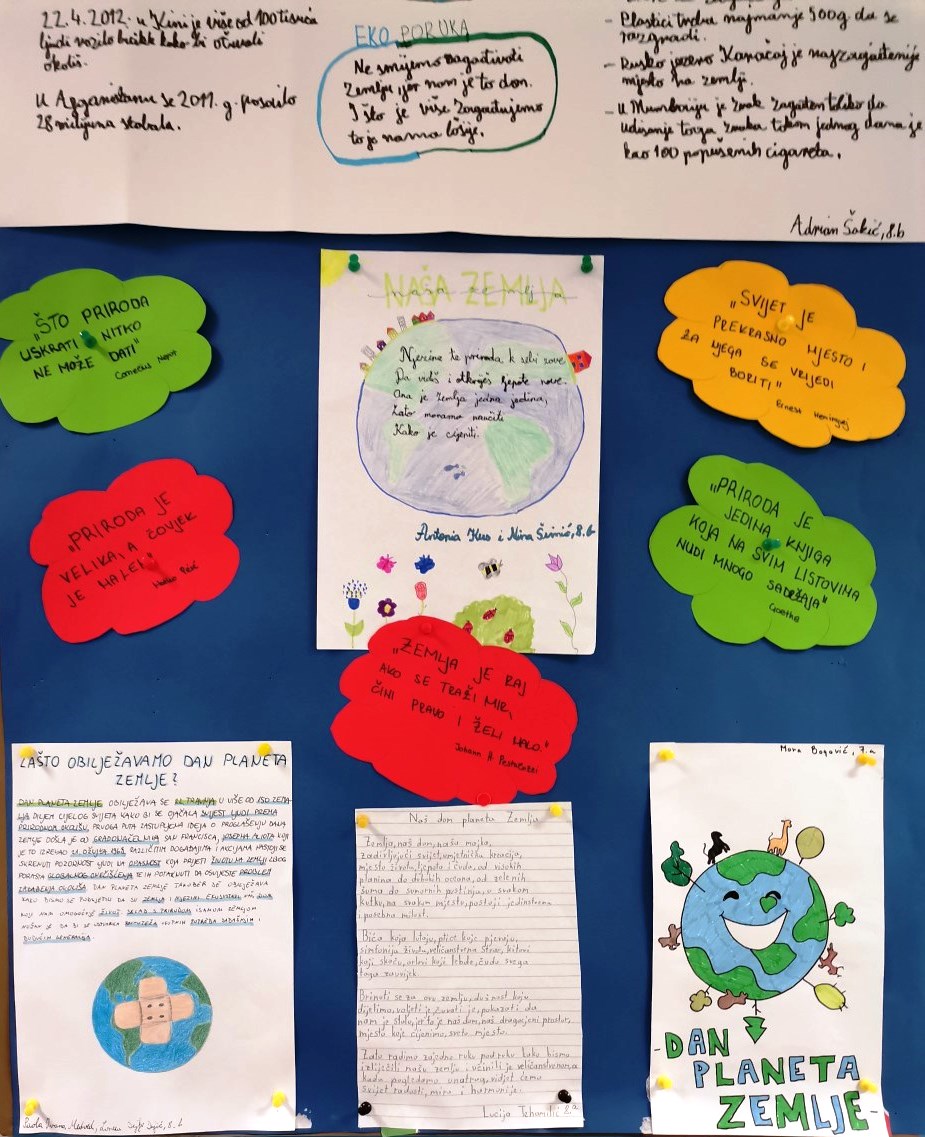 22.4.2012. u Kini je više od 100 tisuća
ljudi vozilo bicikle kako bi očuvali
okoliš.
U Afganistanu se 2011. g. posadilo
28 milijuna stabala.
EKO PORUKA
Ne smijemo zagađivati
zemlju jer nam je to don.
I što je više zagađujemo
to je nama lošije.
- Plastici treba najmanje 500g da se
razgradi.
- Rusko jezero Karačaj je najzagađenije
mjesto na zemlji.
- U Mumbaiju je zrak zagađen toliko da
udisanje toga zraka tokom jednog dana je
kao 100 popušenih cigareta.
Adrian Šakić, 8.b
„ŠTO PRIRODA
USKRATI NITKO
NE MOŽE DATI"
Cornelius Nepos
NAŠA ZEMLJA
Njezine te priroda k sebi zove
Da vidiš i otkriješ ljepote nove.
Ona je Zemlja jedna jedina,
Zato moramo naučiti
Kako je cijeniti.
Antonia Kus i Nina Šimić, 8.b
„SVIJET JE
PREKRASNO MJESTO I
ZA NJEGA SE VRIJEDI
BORITI"
Ernest Hemingvej
„PRIRODA JE
VELIKA, A ČOVJEK
JE MALEN"
„PRIRODA JE
JEDINA KNJIGA
KOJA NA SVIM LISTOVIMA
NUDI MNOGO SADRŽAJA"
Goethe
„ZEMLJA JE RAJ
AKO SE TRAŽI MIR,
ČINI PRAVO I ŽELI MALO."
Johann H. Pestalozzi
ZAŠTO OBILJEŽAVAMO DAN PLANETA
ZEMLJE?
DAN PLANETA ZEMLJE OBILJEŽAVA SE 22. TRAVNJA U VIŠE OD 150 ZEMA
LJA DILJEM CIJELOG SVIJETA KAKO BI SE OJAČALA SVIJEST LJUDI PREMA
PRIRODNOM OKOLIŠU. PRVOGA PUTA ZASTUPLJENA IDEJA O PROGLAŠENJU DANA
ZEMLJE DOŠLA JE OD GRADONAČELNIKA SAN FRANCISCA, JOSEPHA ALIOTA KOJI
JE TO IZREKAO 21. OŽUJKA RAZLIČITIM DOGAĐAJIMA I AKCIJAMA NASTOJI SE
SKRENUTI POZORNOST LJUDI NA OPASNOST KOJA PRIJETI ŽIVOTU NA ZEMLJI ZBOG
PORASTA GLOBALNOG ONEČIŠĆENJA TE IH POTAKNUTI DA OSVIJESTE PROBLEM
ZAGAĐENJA OKOLIŠA. DAN PLANETA ZEMLJE TAKOĐER SE OBILJEŽAVA
KAKO BISMO SE PODSJETILI DA SU ZEMLJA I NJEZINI EKOSUSTAVI
KOJI NAM OMOGUĆUJE ŽIVOT. SKLAD S PRIRODOM I SAMOM ZEMLJOM
NUŽAN JE DA BI SE USPOSTAVILA RAVNOTEŽA POTREBA SADAŠNJIH I
BUDUĆIH GENERACIJA.
Naš dom planeta Zemlja
Zemlja, naš dom, našu majka,
zadivljujući svijet, umjetnička kreacija,
mjesto života, ljepote i čuda, od visokih
planina do dubokih oceana, od zelenih
šuma do sunčanih pustinja, u svakom
kutku, na svakom mjestu, postoji jedinstvena
i posebna milost.
Bića koja lutaju, ptice koje pjevaju,
simfonija života, veličanstvena stvar, kitovi
koji skaču, orlovi koji lebde, čudo svega
toga zauvijek.
Brinuti se za ovu zemlju, dužnost koju
dijelimo, voljeti je, čuvati je, pokazati da
nam je stalo, jer to je naš dom, naš dragocjeni prostor,
mjesto koje cijenimo, sveto mjesto.
Zato radimo zajedno ruku pod ruku kako bismo
izliječili našu zemlju i učinili je veličanstvenom, a
kada pogledamo unatrag, vidjet ćemo
svijet radosti, mira i harmonije.
Lucija 8.a
Mara Bogović, 7.a
-DAN
PLANETA
ZEMLJE-